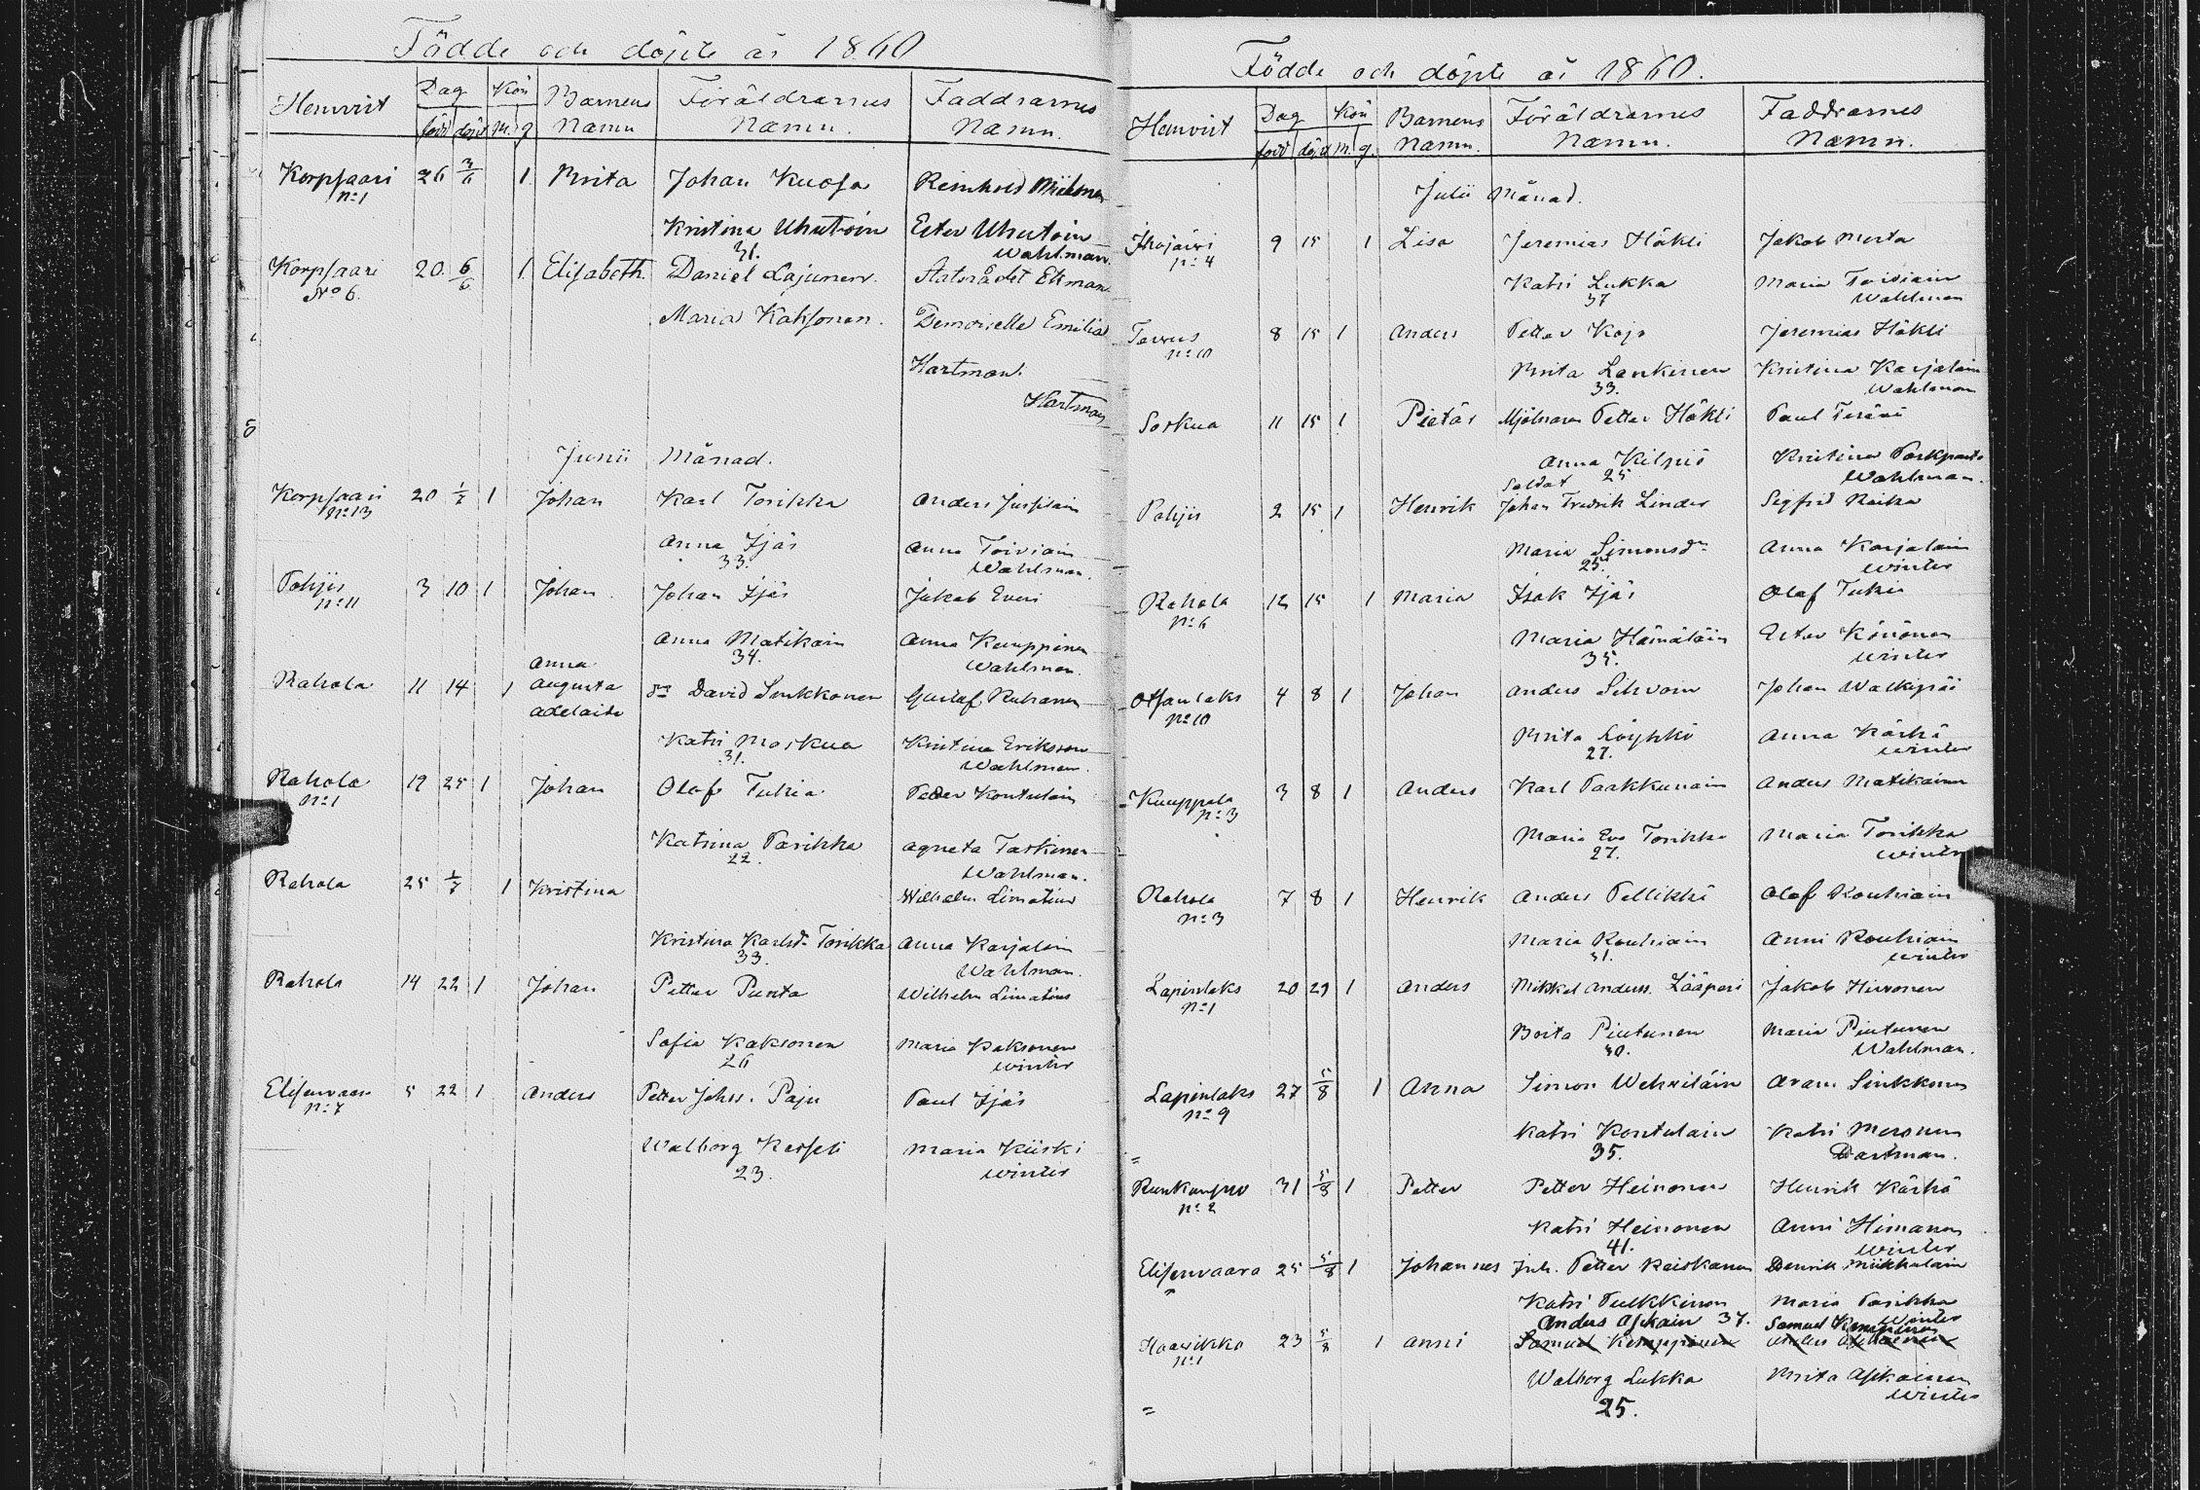 Födde och döpte år 1860
Hemvist Dag Kön Barnens Föräldrarnes Faddrarnes
född döpt m. q Namn Namn. Namn.
Korpsaari 26 3/6 1 Brita Johan Kuosa Reinhold
No 1
Kristina Uhutoin Ester Uhutoin
31. Wahlman
Korpsaari 20 6/6 1 Elisabeth Daniel Lajunen Statsrådet Ekman
No 6.
Maria Kaksonen. Demoiselle Emilia
Hartman.
Hartman
Junii Månad.
Korpsaari 20 1/7 1 Johan Karl Torikka Anders
No 13
Anna Ijäs Anna Toiviain
33. Wahlman.
Pohjis 3 10 1 Johan Johan Ijäs Jakob Everi
No 11
Anna Matikain Anna Kemppinen
34. Wahlman.
Anna
Rahola 11 14 1 Augusta David Sinkkonen Gustaf Ruhanen
Adelaide
Katri Moskua Kristina Eriksson
31. Wahlman.
Rahola 19 25 1 Johan Olof Tukia Peder Kontulain
No 1
Katrina Parikka Agneta Taskinen
22. Wahlman.
Rahola 25 1/7 1 Kristina Wilhelm Limatius
Kristina Karlsdr Torikka Anna Karjalain
33. Wahlman.
Rahola 14 22 1 Johan Petter Punta Wilhelm Limatius
Sofia Kaksonen Maria Kaksonen
26 Winter
Elisenvaara 5 22 1 Anders Petter Johss. Paju Paul Ijäs
No 7
Walborg Kesseli Maria Kiiski
23. Winter
Födde och döpte år 1860.
Hemvist Dag Kön Barnens Föräldrarnes Faddrarnes
född döpt m. q. Namn. Namn. Namn.
Julii Månad.
Ihojärvi 9 15 1 Lisa Jeremias Häkli Jakob Mosta
No 4
Katri Lukka Maria Toiviain
37 Wahlman
Tervus 8 15 1 Anders Petter Kojo Jeremias Häkli
No 10
Brita Lankinen Kristina Karjalain
33. Wahlman
Soskua 11 15 1 Pietär Mjölnaren Petter Häkli Paul Teräväi
Anna Kilpiö Kristina
25 Wahlman.
Soldat
Pohjis 2 15 1 Henrik Johan Fredrik Linder Sigfrid Raika
Maria Simonsdr Anna Karjalain
25. Winter
Rahola 12 15 1 Maria Isak Ijäs Olof Tukia
No 6
Maria Hämäläin Ester Könönen
35. Winter
Otsanlaks 4 8 1 Johan Anders Sihvoin Johan Walkipää
No 10
Brita Löyhkö Anna Kärhä
27. Winter
Kumppola 3 8 1 Anders Karl Parkkunain Anders Matikainen
No 3
Maria Eva Torikka Maria Torikka
27. Winter
Rahola 7 8 1 Henrik Anders Pellikkä Olof Rouhiain
No 3
Maria Rouhiain Anni Rouhiain
31. Winter
Lapinlaks 20 29 1 Anders Mikkel Anderss. Lääperi Jakob Hirvonen
No 1
Brita Piutunen Maria Piutunen
30. Wahlman.
Lapinlaks 27 5/8 1 Anna Simon Wehviläin Aram Sinkkonen
No 9
Katri Kontulain Katri Meronen
35. Hartman.
=
Runkonpuo 31 5/8 1 Petter Petter Heinonen Henrik Kärhä
No 2
Katri Heinonen Anni Himanen
41. Winter
Elisenvaara 25 5/8 1 Johannes Joh. Petter Reiskanen Henrik Miikkulain
"
Katri Pulkkinen Maria Parikka
Anders Askain 37. Samuel Kemppinen Winter
Haavikko 23 5/8 1 Anni Samuel Kemppinen Anders Askainen
No 1
Walborg Lukka Brita Askainen
25. Winter
=